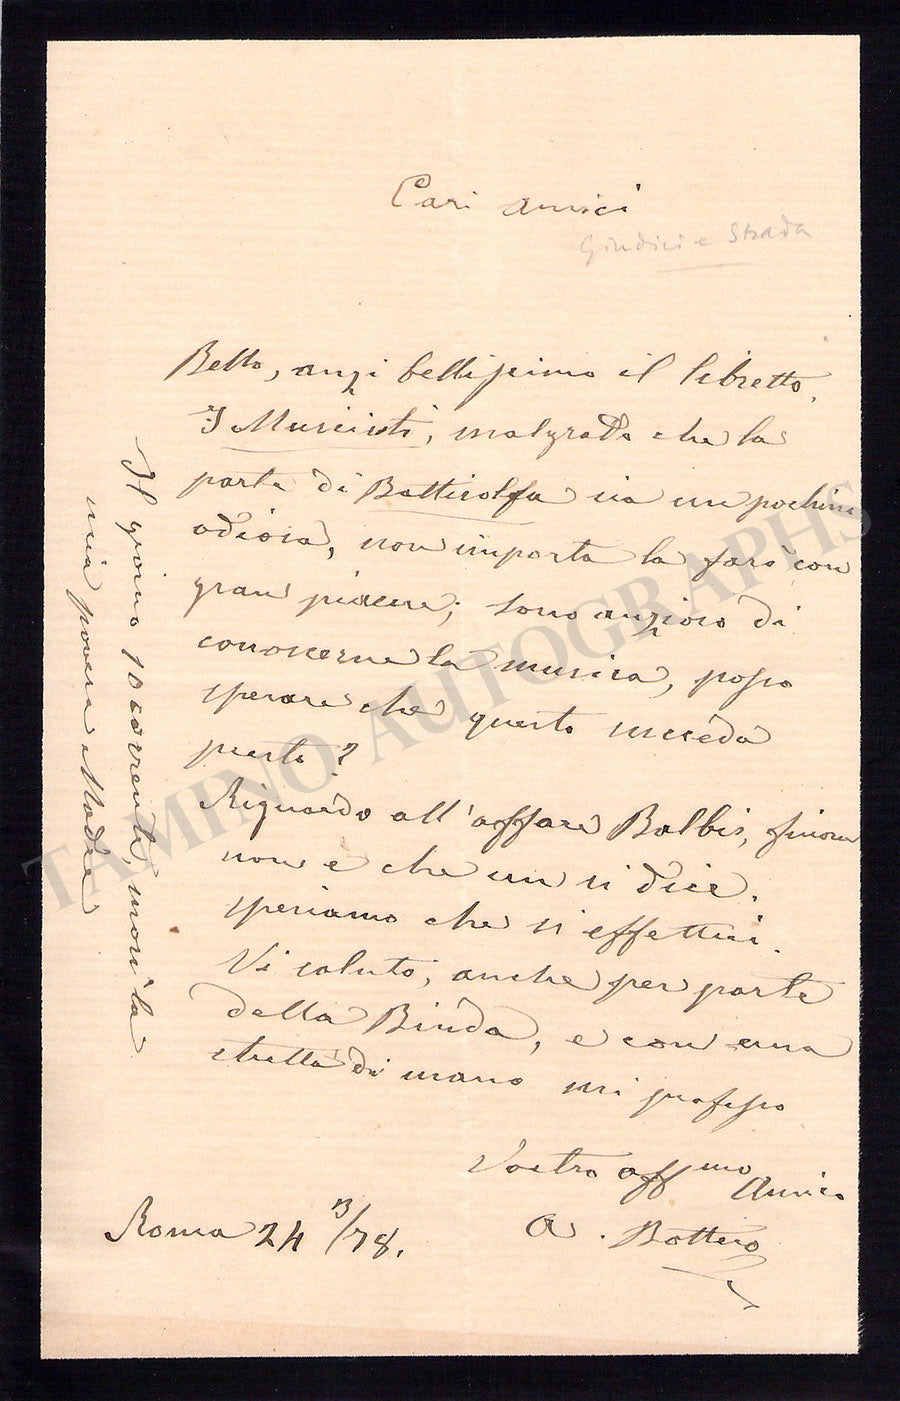 Cari amici
Giudici e Strada
Bello, anzi bellissimo il libretto,
I Musicisti, malgrado che la
parte di Battisolfa sia un pochino
odiosa, non importa la farò con
gran piacere; sono anzioso di
conoscerne la musica, posso
sperare che questo succeda
presto?
Riguardo all'affare Balbis, finora
non è che un si dice.
speriamo che si effettui.
Vi saluto, anche per parte
della Binda, e con una
stretta di mano mi professo
Vostro aff.mo Amico
A. Bottero
Roma 24 /78.
Il giorno 10 corrente, morì la
mia povera Madre
TAMINO AUTOGRAPHS